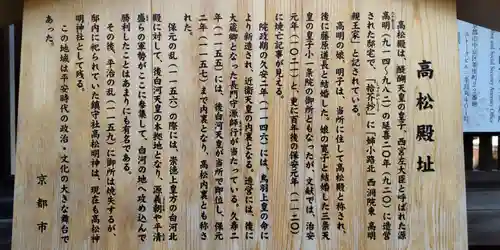 高松殿址
高松殿は、醍醐天皇の皇子、西宮左大臣と呼ばれた源
高明(九一四~九八二)の延喜二〇年(九二〇)に造営
された邸宅で、「拾芥抄」に「姉小路北 西洞院東 高明
親王家」と記されている。
高明の娘、明子は、当所に住して高松殿と称され、
後に藤原道長と結婚した。娘の寛子と結婚した三条天
皇の皇子小一条院の御所ともなったが、文献では、治安
元年(一〇二一)と、更に百年後の保安元年(一一二〇)
に焼亡記事が見える。
院政期の久安二年(一一四六)には、鳥羽上皇の命に
より新造され、近衛天皇の内裏となる。造営には、後に
大蔵卿となった長門守源師行が当たっている。久寿二
年(一一五五)には、後白河天皇が当所で即位し、保元
二年(一一五七)まで内裏となり、高松内裏とも称さ
れた。
保元の乱(一一五六)の際には、崇徳上皇方の白河北
殿に対して、後白河天皇の本拠地となり、源義朝や平清
盛らの軍勢がここに参集して、白河の地へ攻め込んで
勝利したことはあまりにも有名である。
その後、平治の乱(一一五九)に御所は焼失するが、
邸内に祀られていた鎮守社高松明神は、現在も高松神
明神社として残る。
この地域は平安時代の政治・文化の大きな舞台で
あった。
京都市